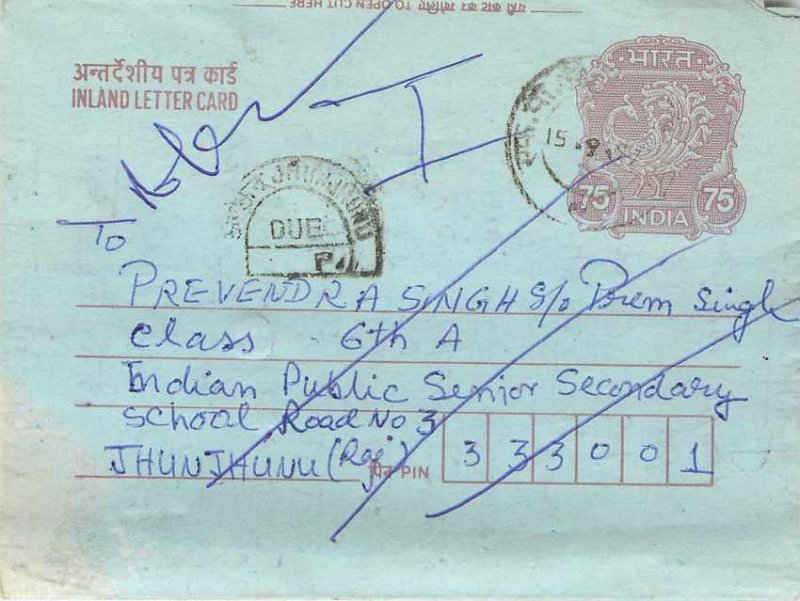 यहाँ काट कर खोलिए TO OPEN CUT HERE
अन्तर्देशीय पत्र कार्ड
INLAND LETTER CARD
भारत
75 75
INDIA
15.9
JHUNJHUNU
DUE
To
PREVENDRA SINGH S/o Prem Singh
Class 6th A
Indian Public Senior Secondary
School Road No 3
JHUNJHUNU (Raj) पिन PIN 333001